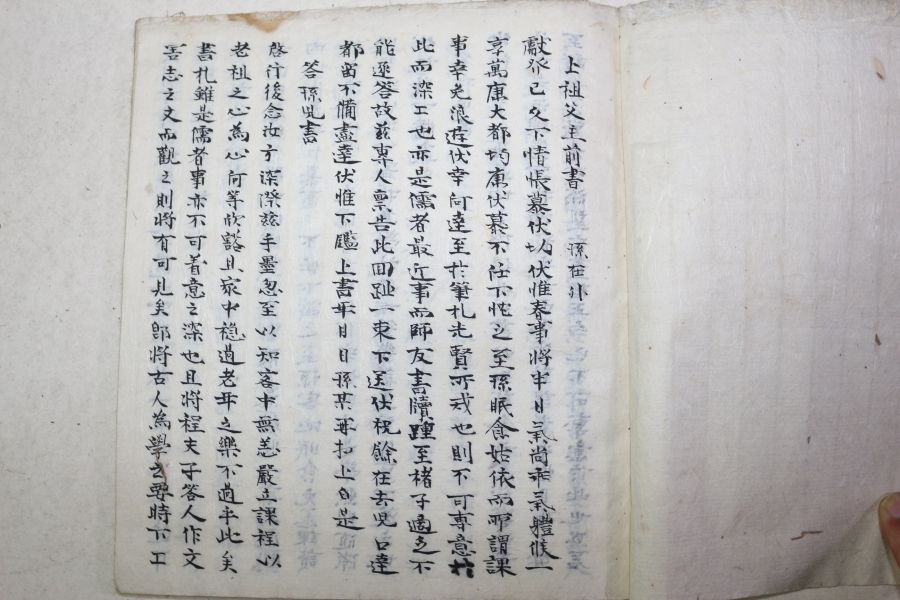 上祖父主前書 孫在外
獻發已久下情悵慕伏切伏惟春事將半日氣尚乖氣體候一
享萬康大都均廉伏慕不任下忱之至孫眠食姑依而所謂課
事幸免浪遊伏幸何達至於筆札先賢所戒也則不可專意於
此而深工也亦是儒者最近事而師友書牘踵至楮子適乏不
能逐答故玆專人禀告此回亟一束下送伏祝餘在去児口達
都留不備盡達伏惟下鑑上書年月日孫某再拜上白是
答孫児書
啓行後念汝方深際玆手墨忽至以知客中無恙嚴立課程以
老祖之心為心何等欣豁且家中穩過老年之樂不過乎此矣
書札雖是儒者事亦不可着意之深也且將程夫子答人作文
害志之文而觀之則將有可見矣卽將古人為學之要時下工